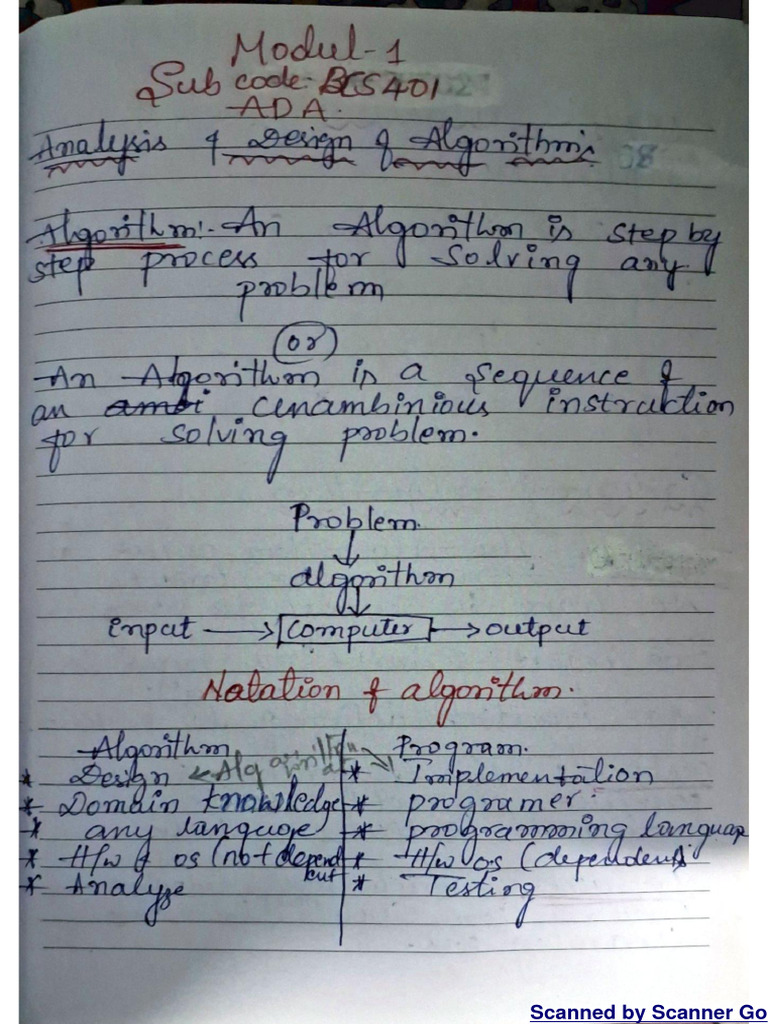 Modul-1
Sub code:- BCS401
ADA.
Analysis & Design of Algorithm's
Algorithm:- An Algorithm is step by
step process for solving any
problem
(or)
An Algorithm is a sequence of
an unambinious instruktion
for solving problem.
Problem.
algorithm
input computer output
Notation of algorithm.
Algorithm Program.
* Design Alg * Implementation
* Domain knowledge * programer.
* any language * programming languag
* H/w & os (not depend * H/w os (dependent)
* Analyze * Testing
Scanned by Scanner Go